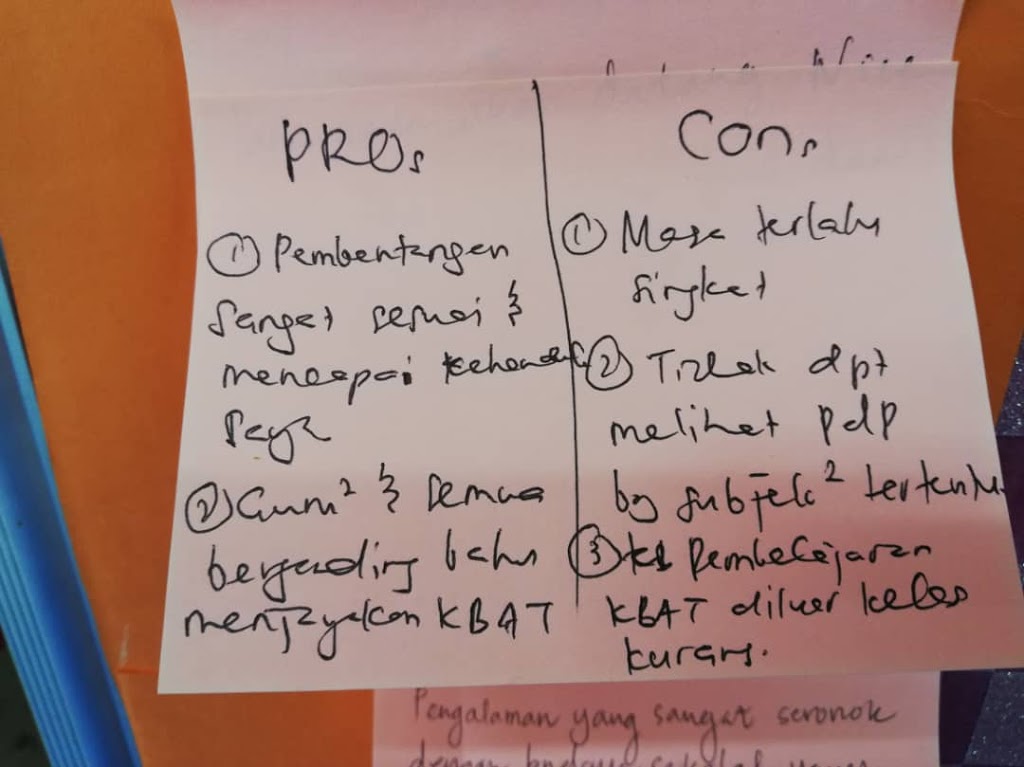 PROs
① Pembentangan
sangat sesuai &
mencapai kehendak
saya
② Guru² & semua
berganding bahu
menjayakan KBAT
Cons
① Masa terlalu
singkat
② Tidak dpt
melihat pdp
bg subjek² tertentu
③ Pembelajaran
KBAT diluar kelas
kurang.
Pengalaman yang sangat seronok
dengan budaya sekolah yang